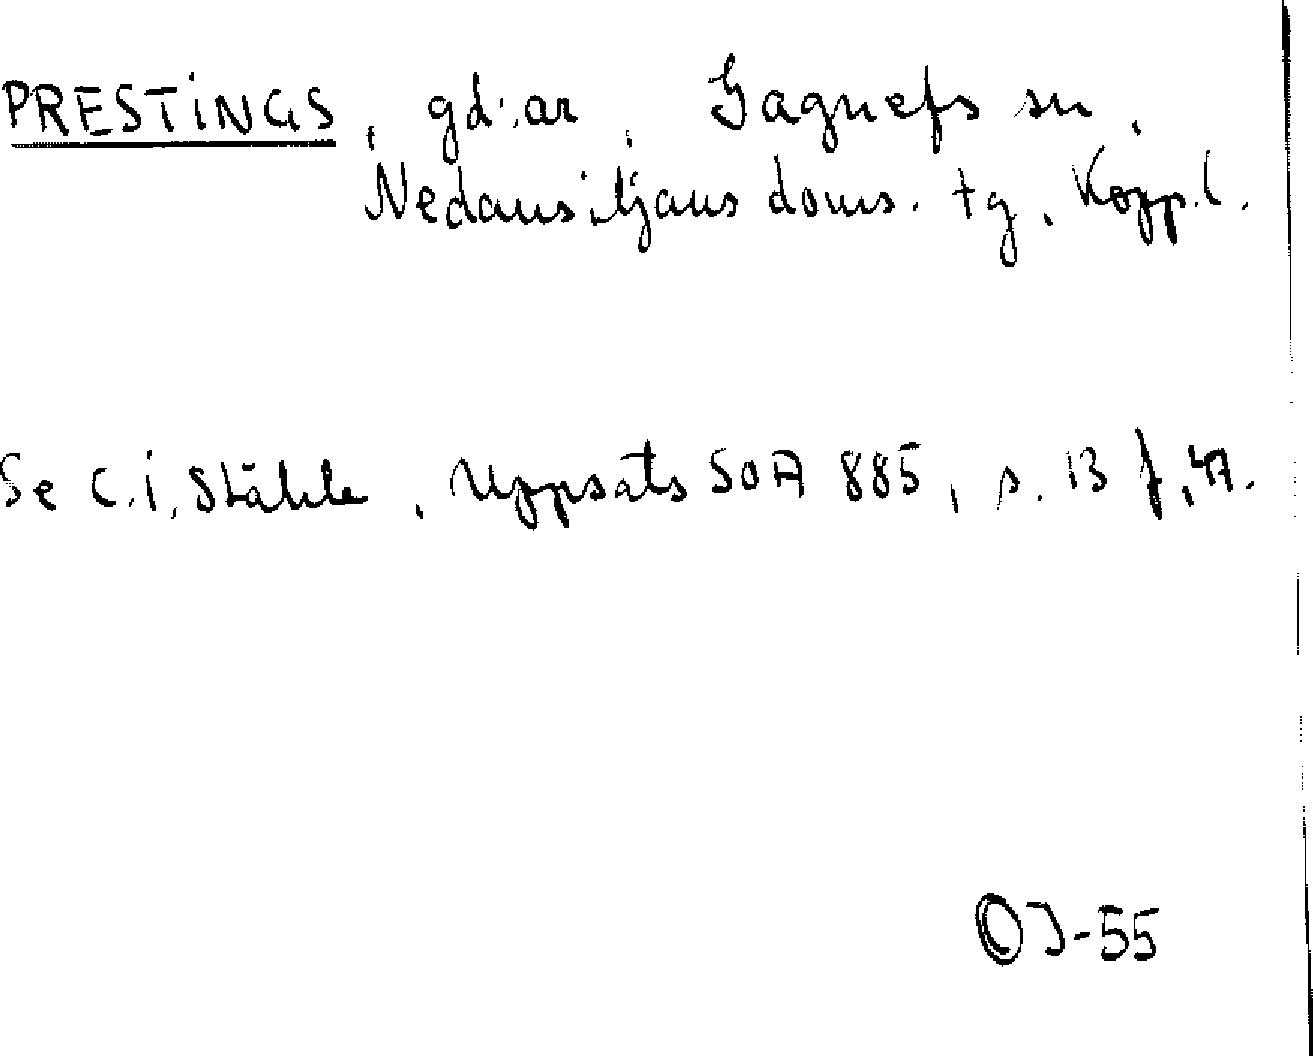 PRESTINGS, gd:ar, Gagnefs sn,
Nedansiljans doms. tg, Kopp.l.
Se C.I. Ståhle, Uppsats SOA 885, s. 13 f, 47.
OJ-55